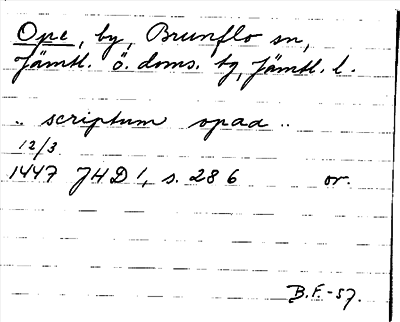 Ope, by, Brunflo sn,
Jämtl. ö. doms. tg, Jämtl. l.
.. scriptum opaa ..
12/3
1447 JHD 1, s. 286 or.
B.F.-57.